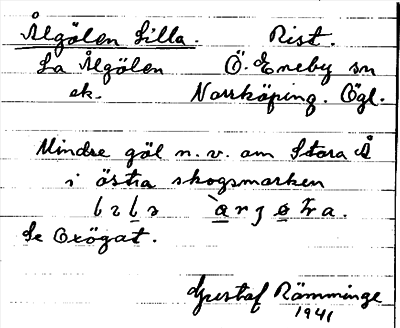 Ålgölen Lilla. Rist.
La Ålgölen Ö. Eneby sn
ek. Norrköping. Ögl.
Mindre göl n. v. om Stora Å
i östra skogsmarken
Se Oxögat.
Gustaf Rämminge
1941